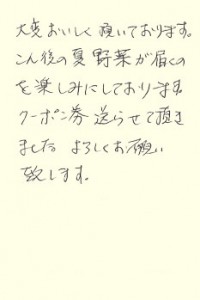 大変おいしく頂いております。
こん後の夏野菜が届くの
を楽しみにしております
クーポン券送らせて頂き
ました。よろしくお願い
致します。